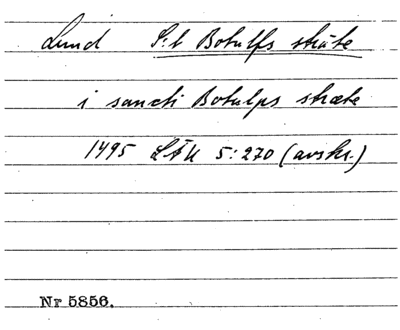 Lund S:t Botulfs sträte
i sancti Botulps stræte
1495 LÄU 5:270 (avskr.)
Nr 5856.